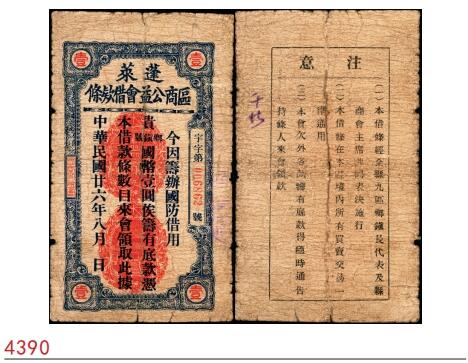 壹 壹
蓬萊
區商公益會借欵條
宇字第
號
今因籌辦國防借用
貴
國幣壹圓俟籌有底款憑
本借款條數目來會領取此據
中華民國廿六年八月 日
壹 壹
注意
(一)本借條經全縣九區鄉鎮長代表及縣
商會主席 表決施行
(二)本借條在本 境內所有買賣交易一
律通用
(三)本會欠外各 籌有底款得隨時通告
持條人來會領欵
4390